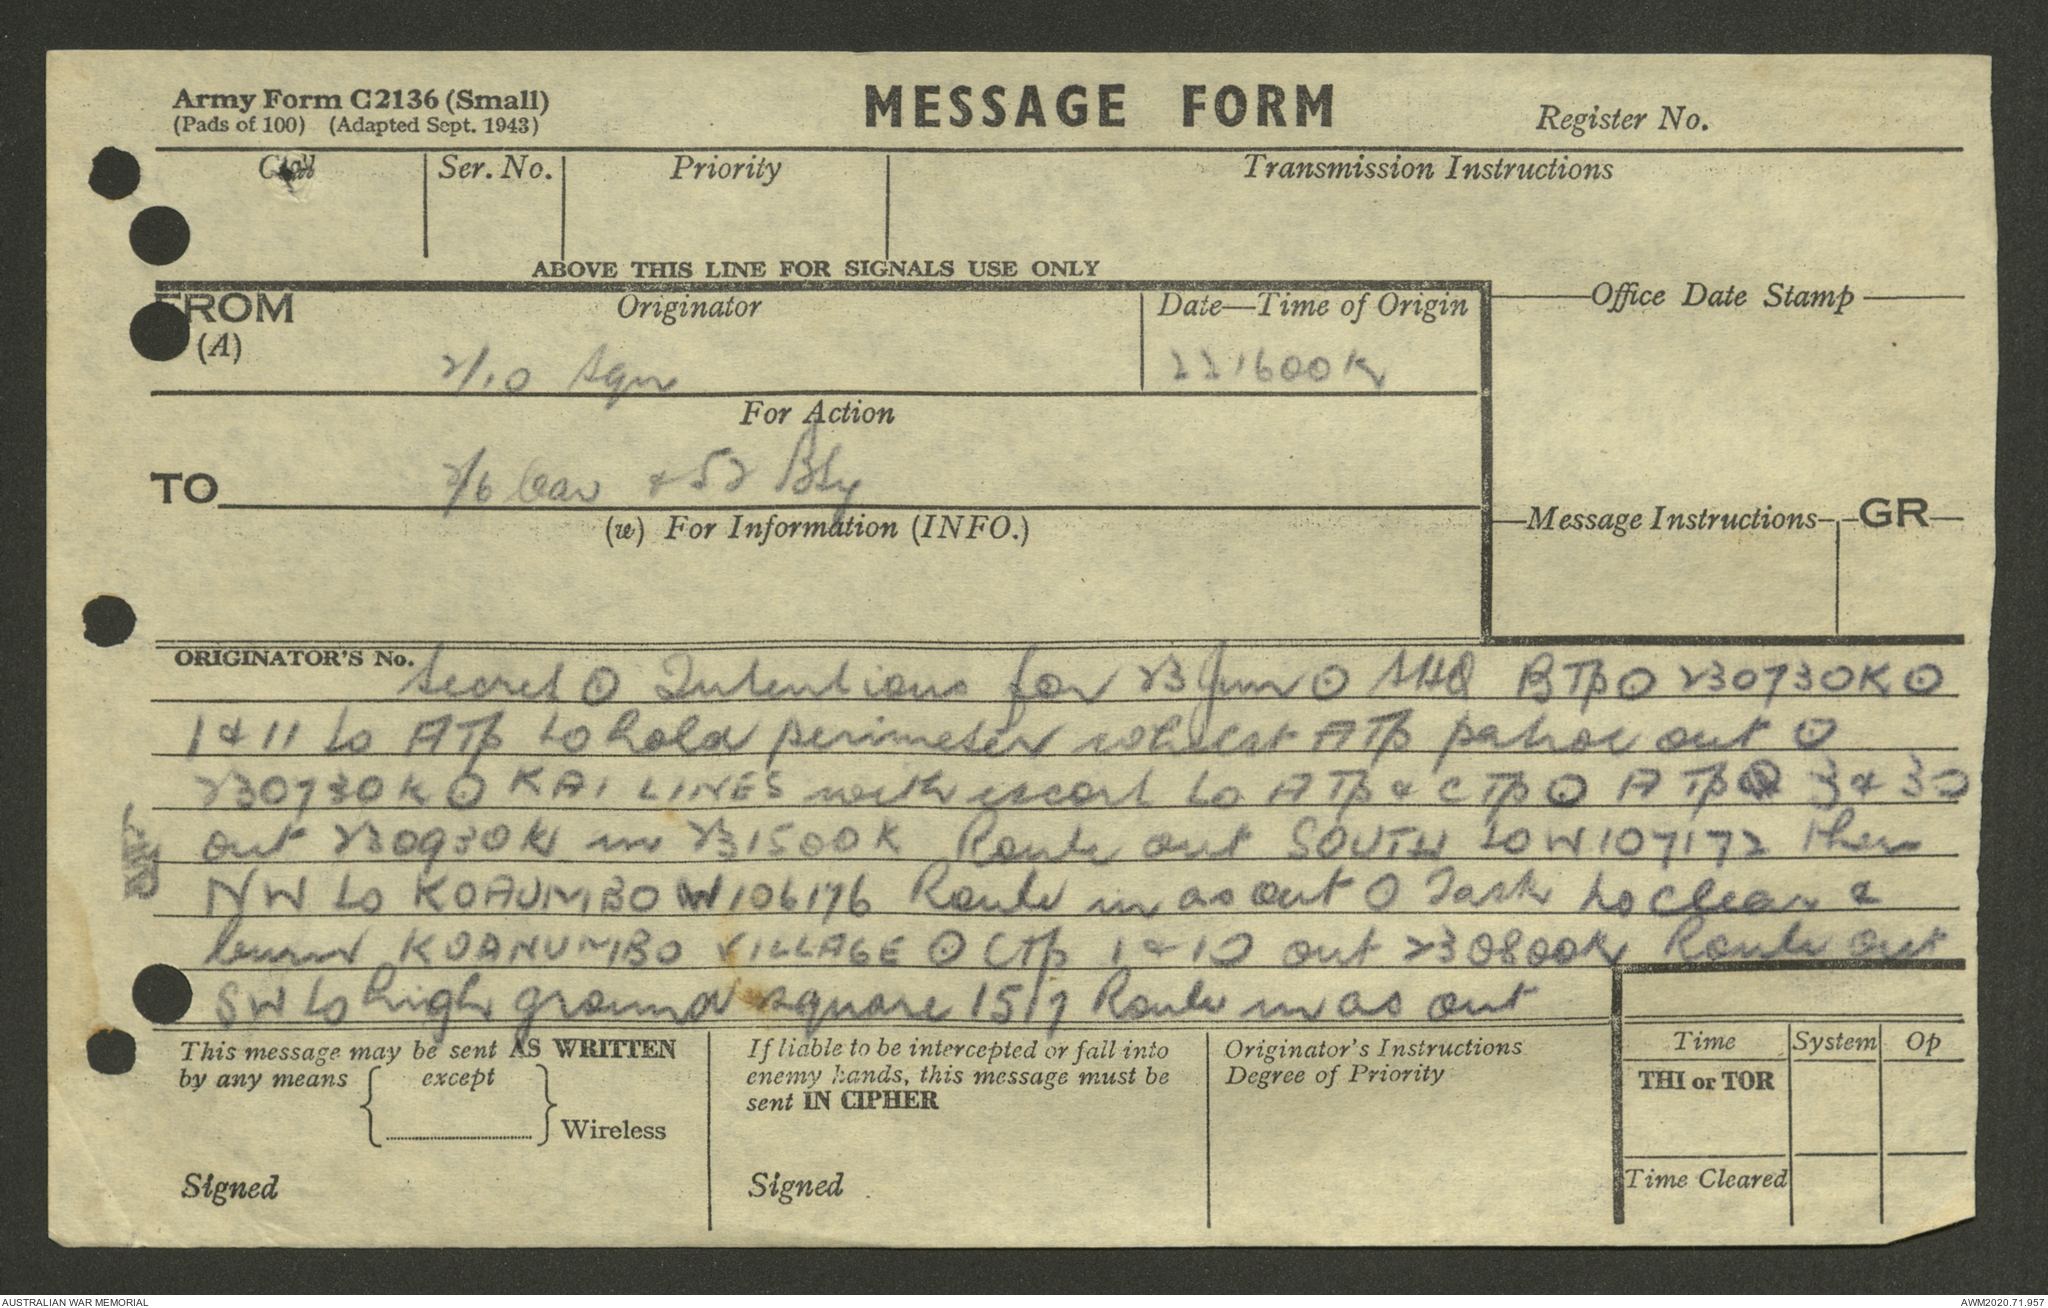 Army Form C2136 (Small)
(Pads of 100) (Adapted Sept. 1943)
MESSAGE FORM
Register No.
Call
Ser. No.
Priority
Transmission Instructions
ABOVE THIS LINE FOR SIGNALS USE ONLY
FROM
(A)
Originator
Date—Time of Origin
Office Date Stamp
2/10 Sqn
221600K
For Action
TO
2/6 Cav & 52 Bty
(w) For Information (INFO.)
Message Instructions
GR
ORIGINATOR'S No.
Secret O Intentions for 23 Jun O SHQ B Tp O 230730K O
1 & 11 to A Tp to hold perimeter whilst A Tp patrol out O
230730K O KAI LINES with escort to A Tp & C Tp O A Tp O 3 & 30
out 230930K in 231500K Route out SOUTH to W107172 then
NW to KOAUMBO W106176 Route in as out O Task to clear &
burn KOANUMBO VILLAGE O C Tp 1 & 10 out 230800K Route out
SW to high ground square 1517 Route in as out
This message may be sent AS WRITTEN
by any means
except
Wireless
Signed
If liable to be intercepted or fall into
enemy hands, this message must be
sent IN CIPHER
Signed
Originator's Instructions
Degree of Priority
Time
System
Op
THI or TOR
Time Cleared
AUSTRALIAN WAR MEMORIAL
AWM2020.71.957